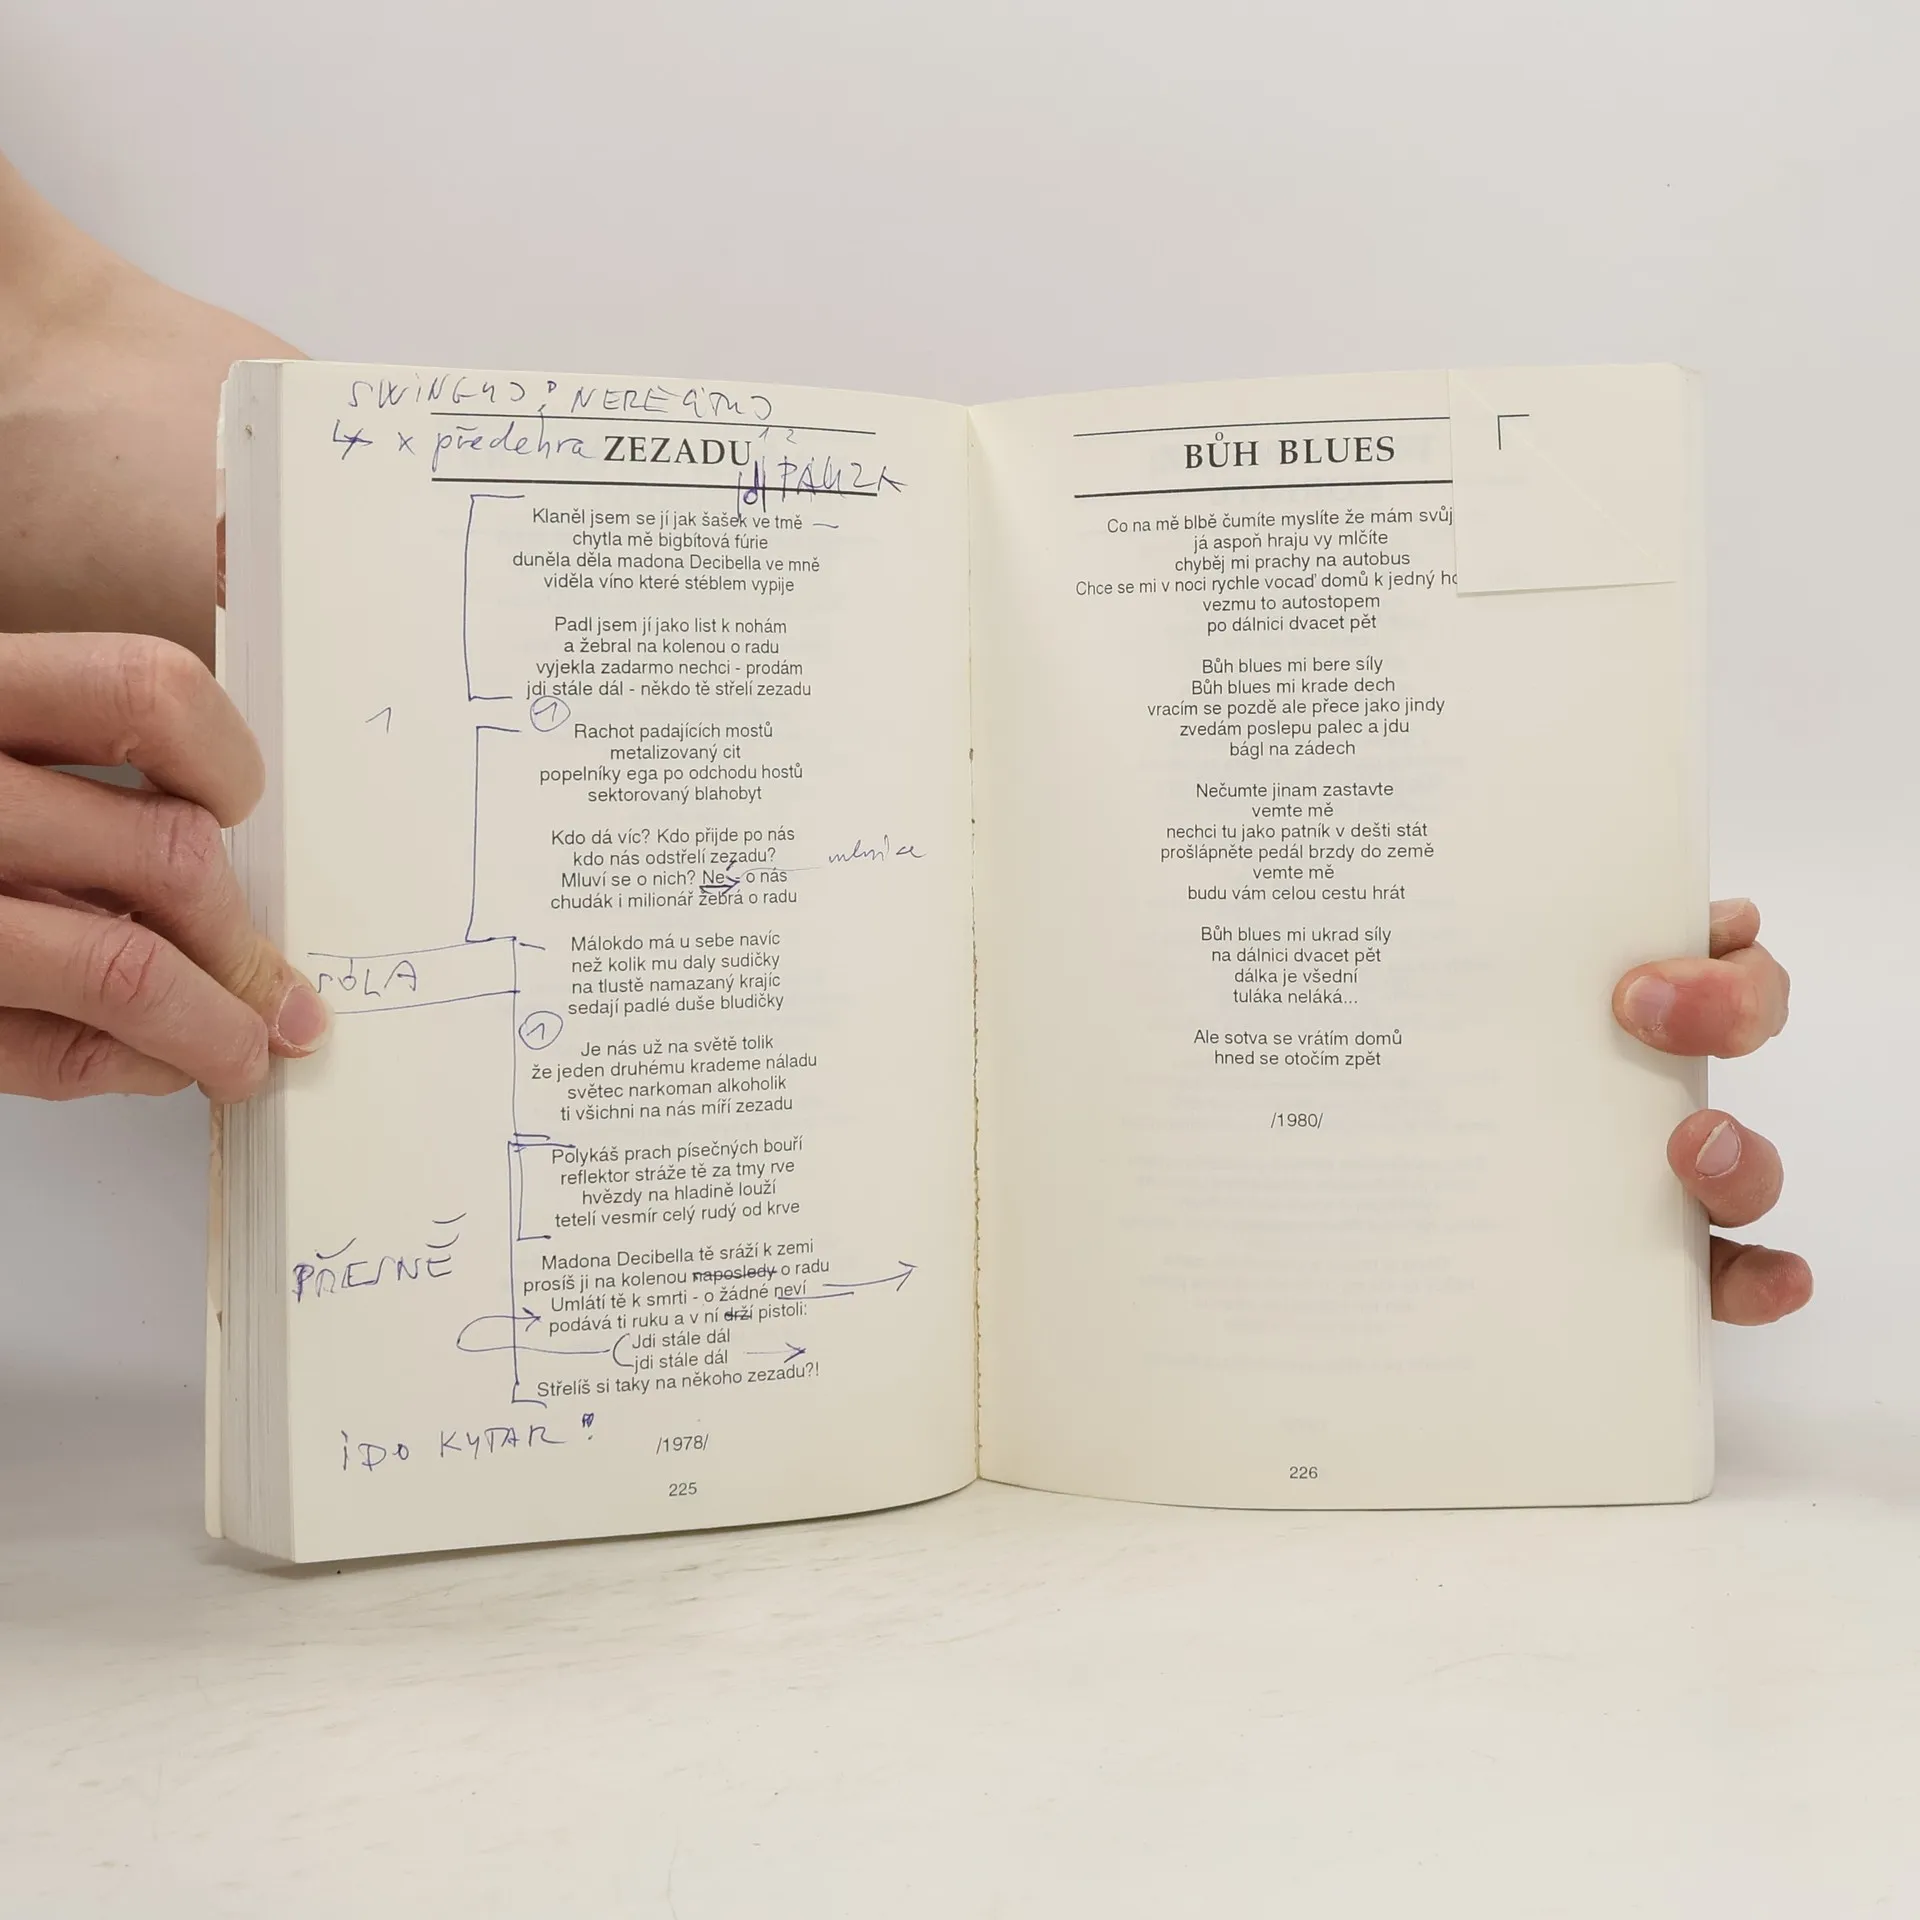 4 x předehra ZEZADU 1 2
PAUZA
Klaněl jsem se jí jak šašek ve tmě
chytla mě bigbítová fúrie
duněla děla madona Decibella ve mně
viděla víno které stéblem vypije
Padl jsem jí jako list k nohám
a žebral na kolenou o radu
vyjekla zadarmo nechci - prodám
jdi stále dál - někdo tě střelí zezadu
1
1
Rachot padajících mostů
metalizovaný cit
popelníky ega po odchodu hostů
sektorovaný blahobyt
Kdo dá víc? Kdo přijde po nás
kdo nás odstřelí zezadu?
Mluví se o nich? Ne - o nás
chudák i milionář žebrá o radu
SÓLA
Málokdo má u sebe navíc
než kolik mu daly sudičky
na tlustě namazaný krajíc
sedají padlé duše bludičky
1
Je nás už na světě tolik
že jeden druhému krademe náladu
světec narkoman alkoholik
ti všichni na nás míří zezadu
Polykáš prach písečných bouří
reflektor stráže tě za tmy rve
hvězdy na hladině louží
tetelí vesmír celý rudý od krve
PŘESNĚ
Madona Decibella tě sráží k zemi
prosíš ji na kolenou naposledy o radu
Umlátí tě k smrti - o žádné neví
podává ti ruku a v ní drží pistoli:
Jdi stále dál
jdi stále dál
Střelíš si taky na někoho zezadu?!
I DO KYTAR!
/1978/
225
BŮH BLUES
Co na mě blbě čumíte myslíte že mám svůj
já aspoň hraju vy mlčíte
chyběj mi prachy na autobus
Chce se mi v noci rychle vocaď domů k jedný
vezmu to autostopem
po dálnici dvacet pět
Bůh blues mi bere síly
Bůh blues mi krade dech
vracím se pozdě ale přece jako jindy
zvedám poslepu palec a jdu
bágl na zádech
Nečumte jinam zastavte
vemte mě
nechci tu jako patník v dešti stát
prošlápněte pedál brzdy do země
vemte mě
budu vám celou cestu hrát
Bůh blues mi ukrad síly
na dálnici dvacet pět
dálka je všední
tuláka neláká...
Ale sotva se vrátím domů
hned se otočím zpět
/1980/
226